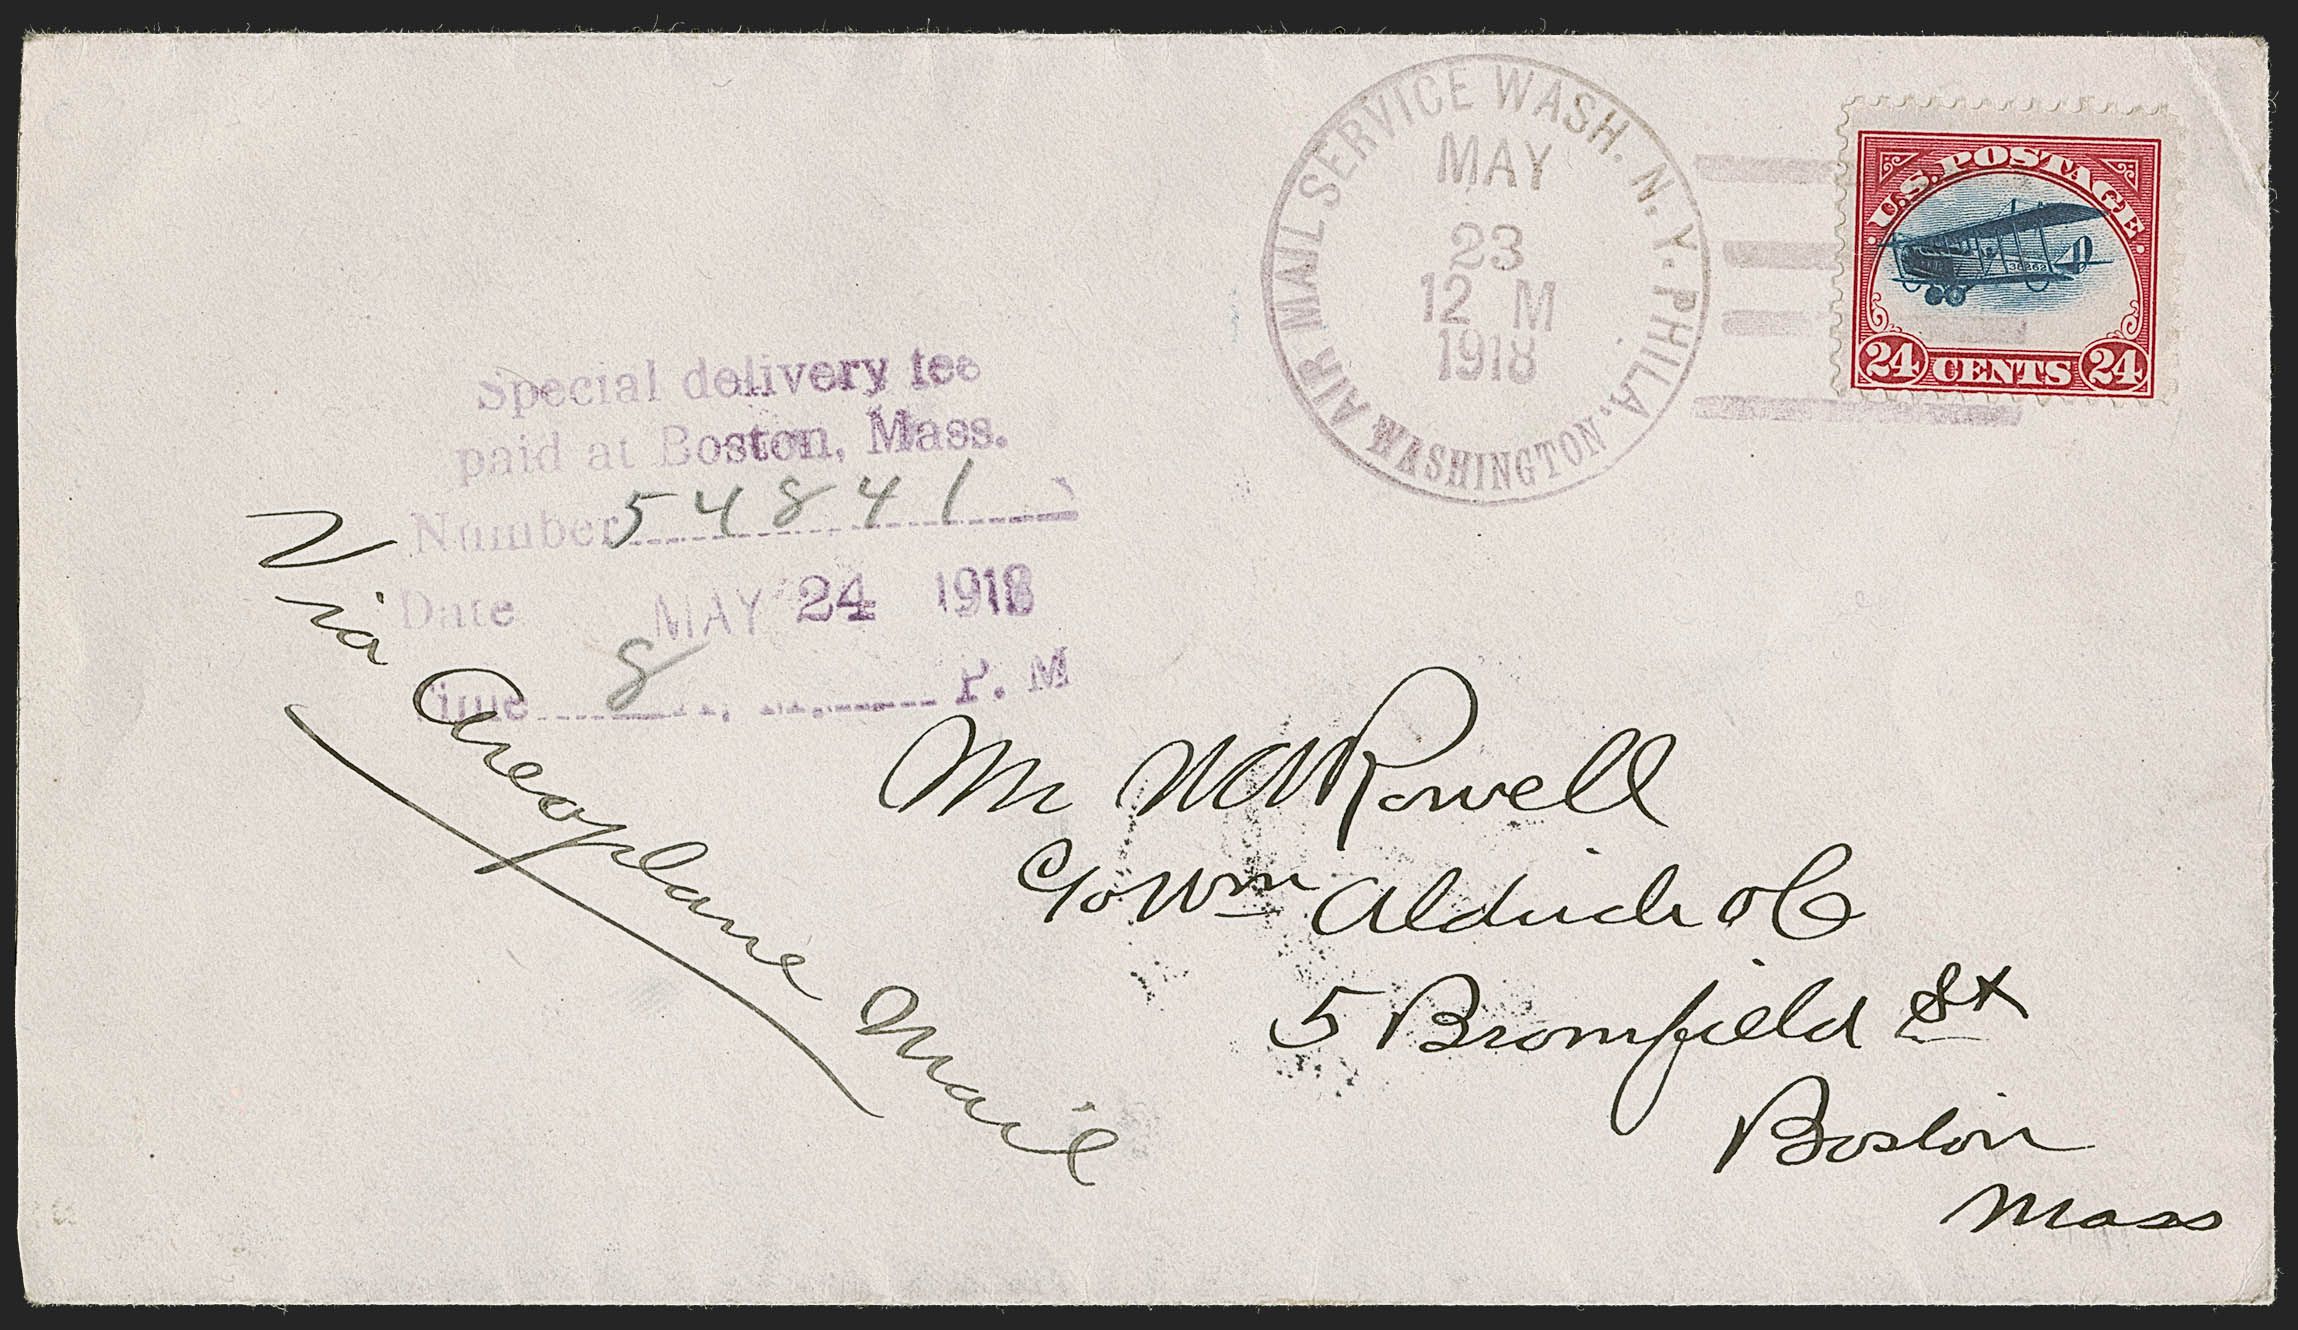 AIR MAIL SERVICE WASH. N.Y. PHILA.
MAY
23
12 M
1918
WASHINGTON
U.S. POSTAGE
38262
24 CENTS 24
Special delivery fee
paid at Boston, Mass.
Number 54841
Date MAY 24 1918
Time 8 P. M
Via Areoplane Mail
Mr Rowell
c/o Wm Aldrich & Co
5 Bromfield St
Boston
Mass